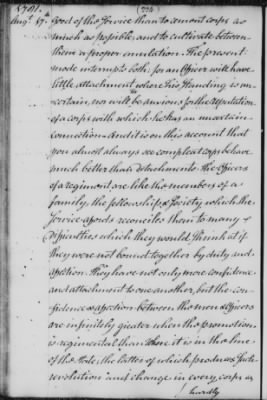 1781.
Augt. 17th
(226)
Good of the Service than to cement corps as
much as possible, and to cultivate between
them a proper emulation. The present
mode interrupts both: for an Officer will have
little attachment where his standing is un-
certain, nor will he be anxious for the reputation
of a corps with which he has an uncertain
connection. And it is on this account that
you almost always see compleat corps behave
much better than detachments. The Officers
of a regiment are like the members of a
family, the fellowship & society which the
Service affords reconciles them to many
difficulties which they would shrink at if
they were not bound together by duty and
affection. They have not only more confidence
and attachment to one another, but the con-
fidence & affection between the men & Officers
are infinitely greater when the promotion
is regimental than where it is in the line
of the State; the latter of which produces such
revolution and change in every corps as
hardly